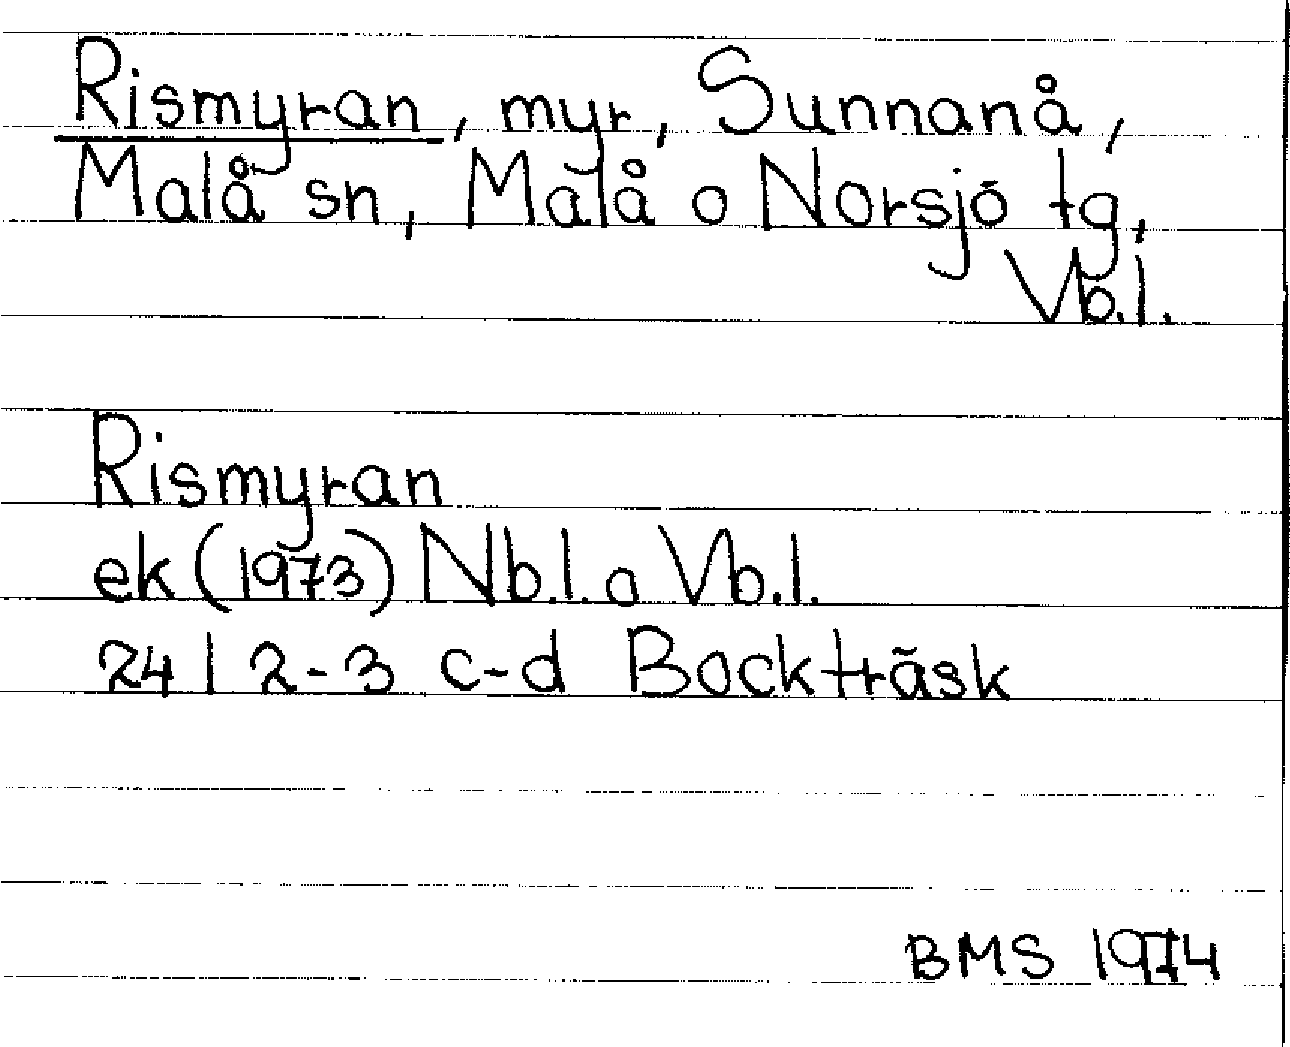 Rismyran, myr, Sunnanå,
Malå sn, Malå o Norsjö tg,
Vb.l.
Rismyran
ek (1973) Nb.l. o Vb.l.
24 I 2-3 c-d Bockträsk
BMS 1974